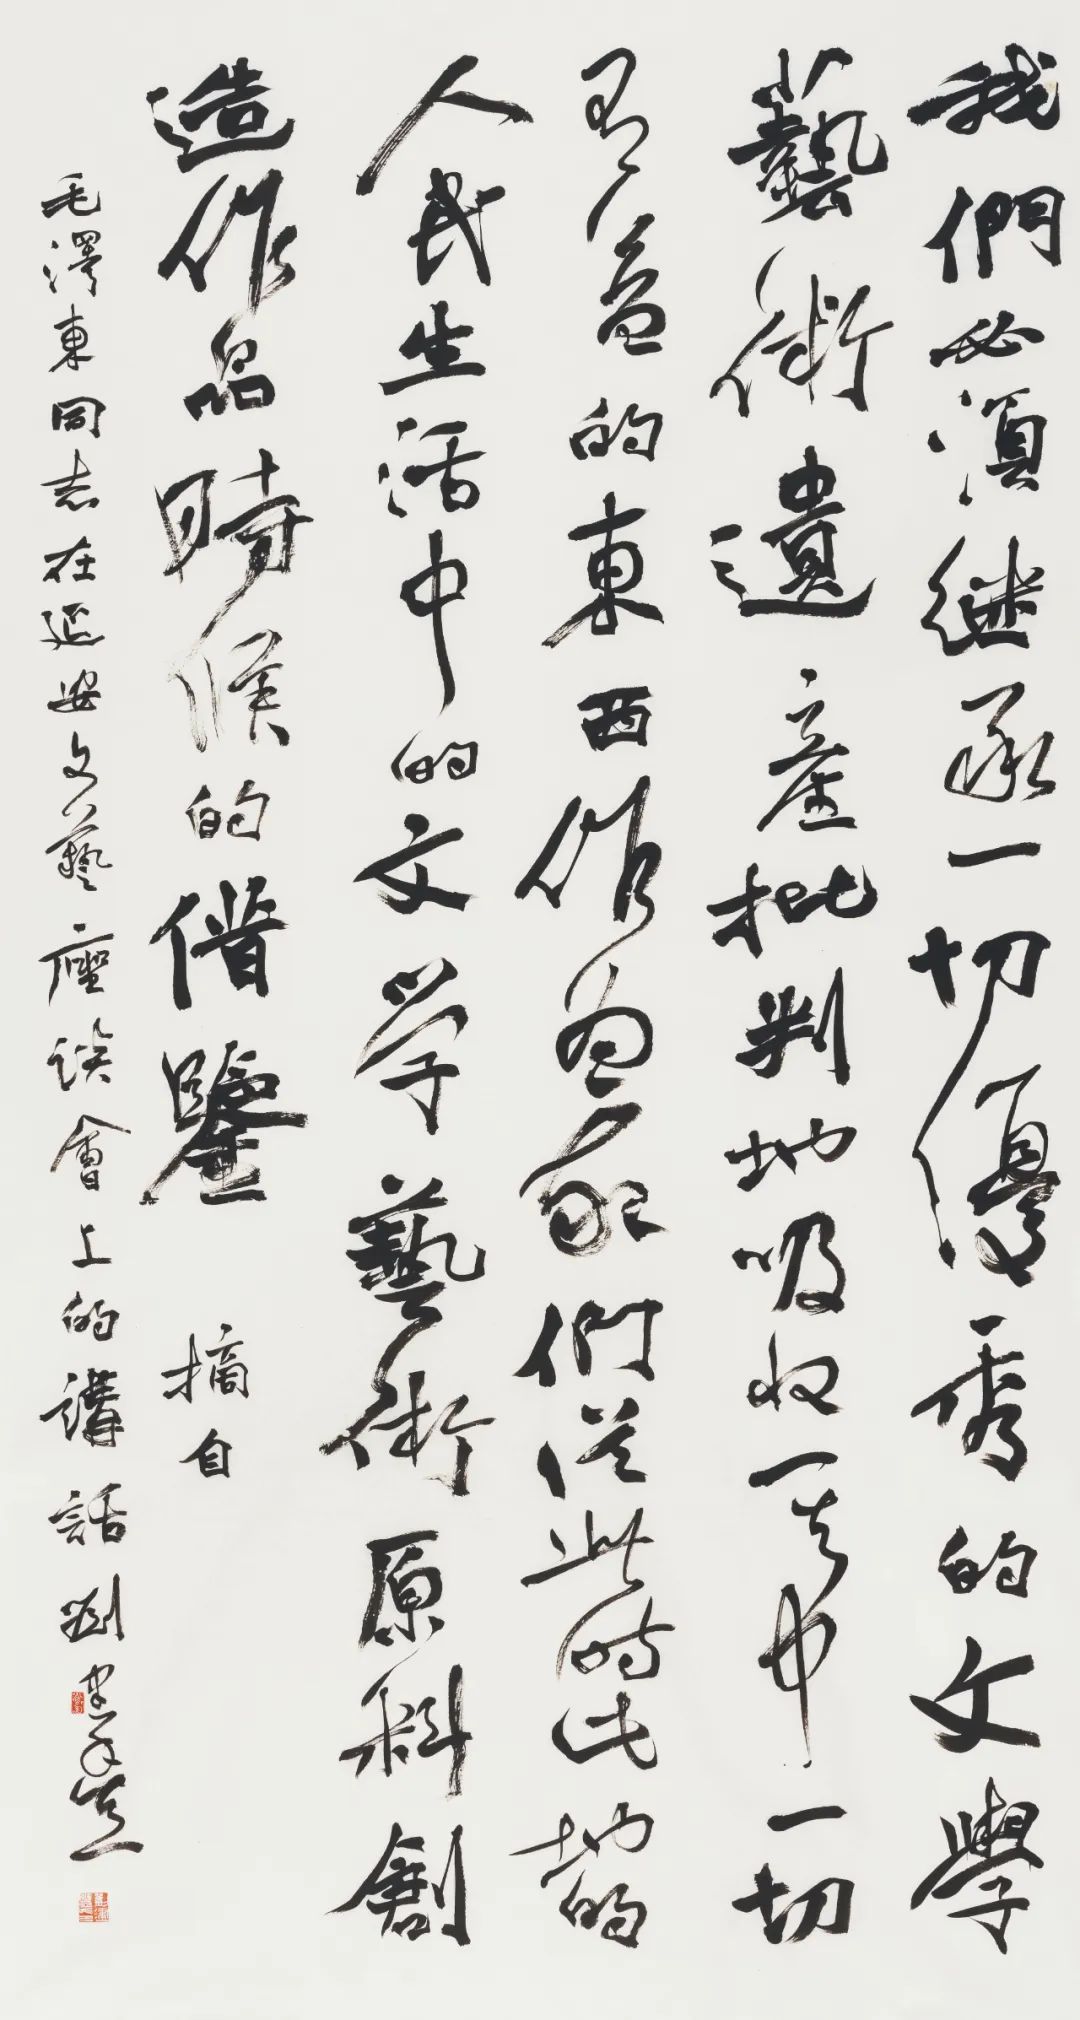 我們必須继承一切優秀的文學
藝術遺產批判地吸收其中一切
有益的東西作為我們從此時此地的
人民生活中的文学藝術原料創
造作品時候的借鑒 摘自
毛澤東同志在延安文藝座談會上的講話 劉